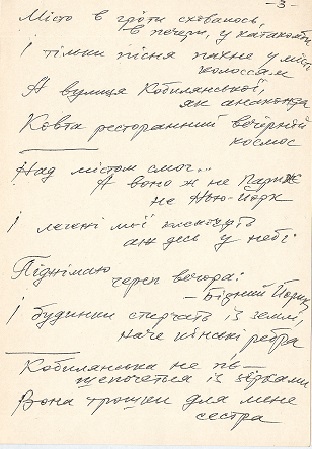 – 3 –
Місто в гроти сховалось,
в печери, у катакомби
І тільки пісня пахне у місті
колоссам
А вулиця Кобилянської,
як анаконда
Ковта ресторанний вечірній
космос
Над містом смог...
А воно ж не Париж
не Нью-Йорк
І легені мої
аж десь у небі
Піднімаю
череп вечора:
– Бідний Йорик
І будинки стирчать із землі,
Наче кінські ребра
Кобилянська не пе–
шепочеться із зірками
Вона трошки для мене
сестра